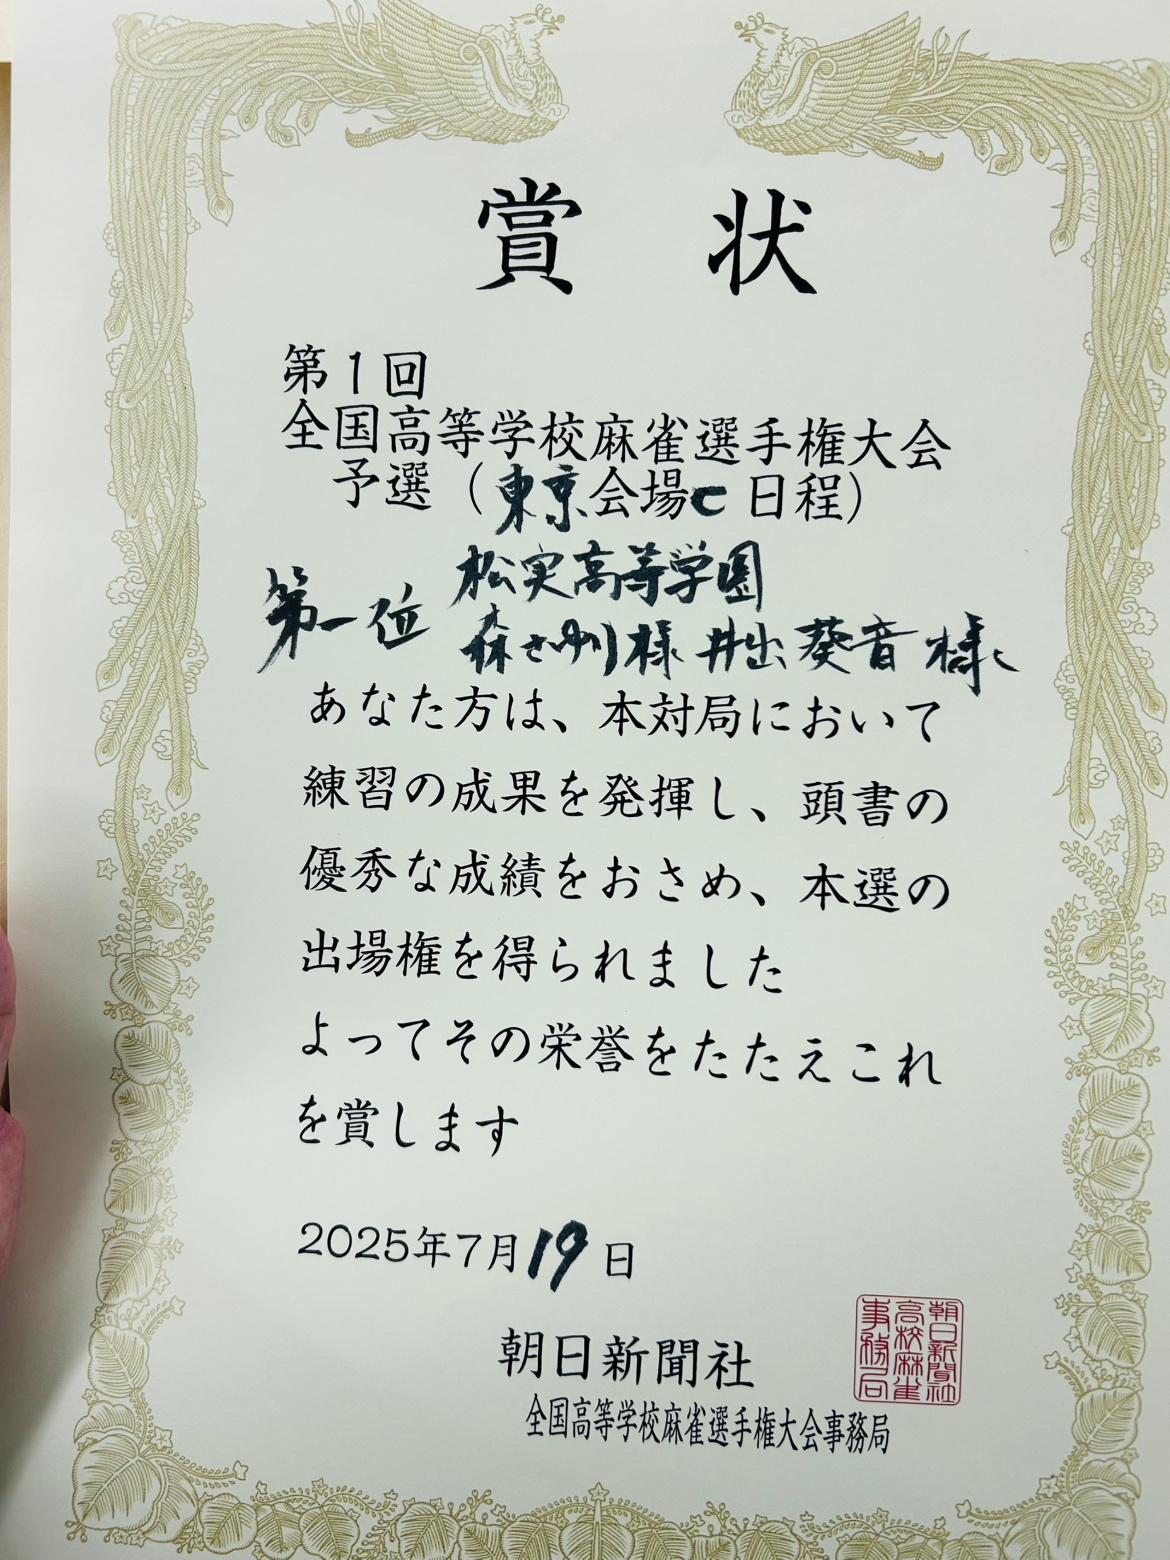 賞状
第1回
全国高等学校麻雀選手権大会
予選（東京会場C日程）
松実高等学園
第一位
森さゆり様 井出葵音様
あなた方は、本対局において
練習の成果を発揮し、頭書の
優秀な成績をおさめ、本選の
出場権を得られました
よってその栄誉をたたえこれ
を賞します
2025年7月19日
朝日新聞社
全国高等学校麻雀選手権大会事務局
朝日新聞社
高校麻雀
事務局